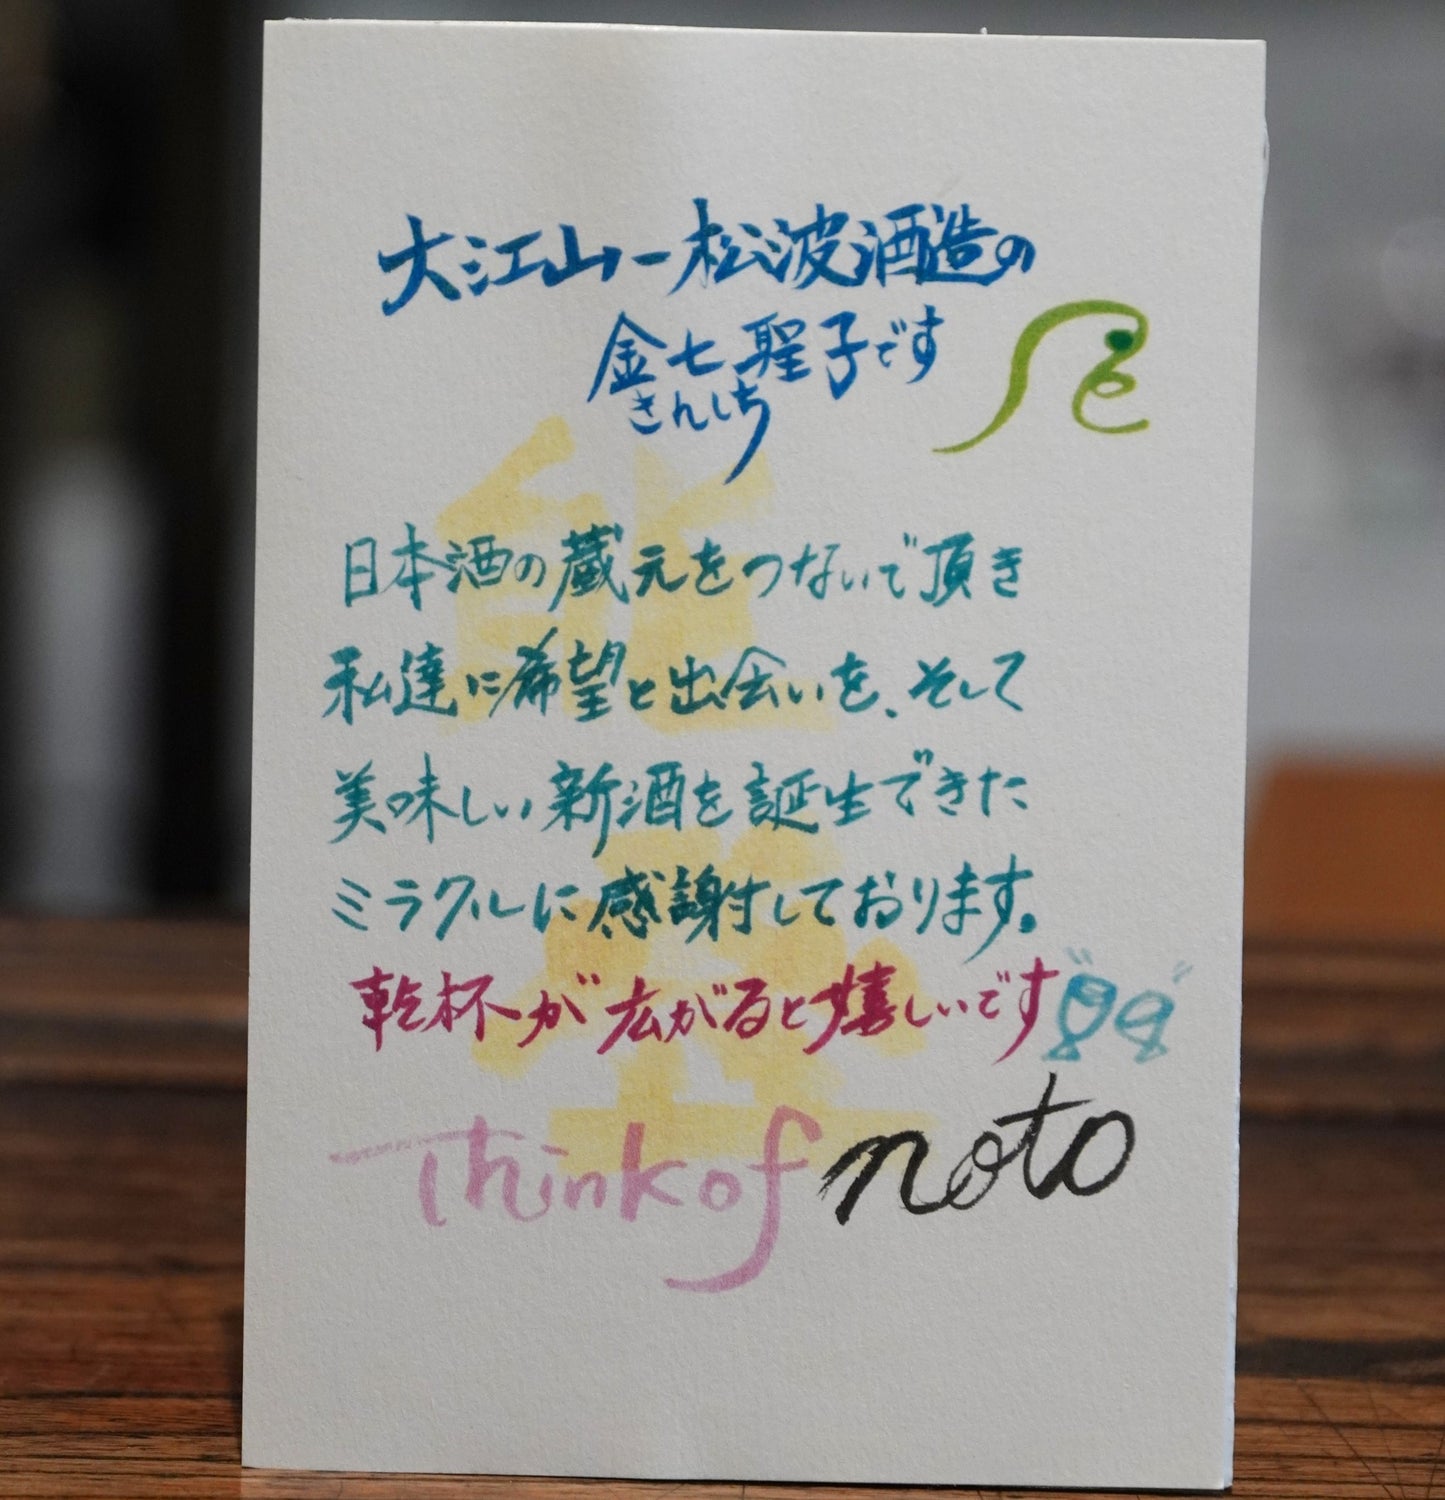 大江山ー松波酒造の
金七聖子です
きんしち
能登
日本酒の蔵元をつないで頂き
私達に希望と出会いを、そして
美味しい新酒を誕生できた
ミラクルに感謝しております。
乾杯が広がると嬉しいです
Think of noto